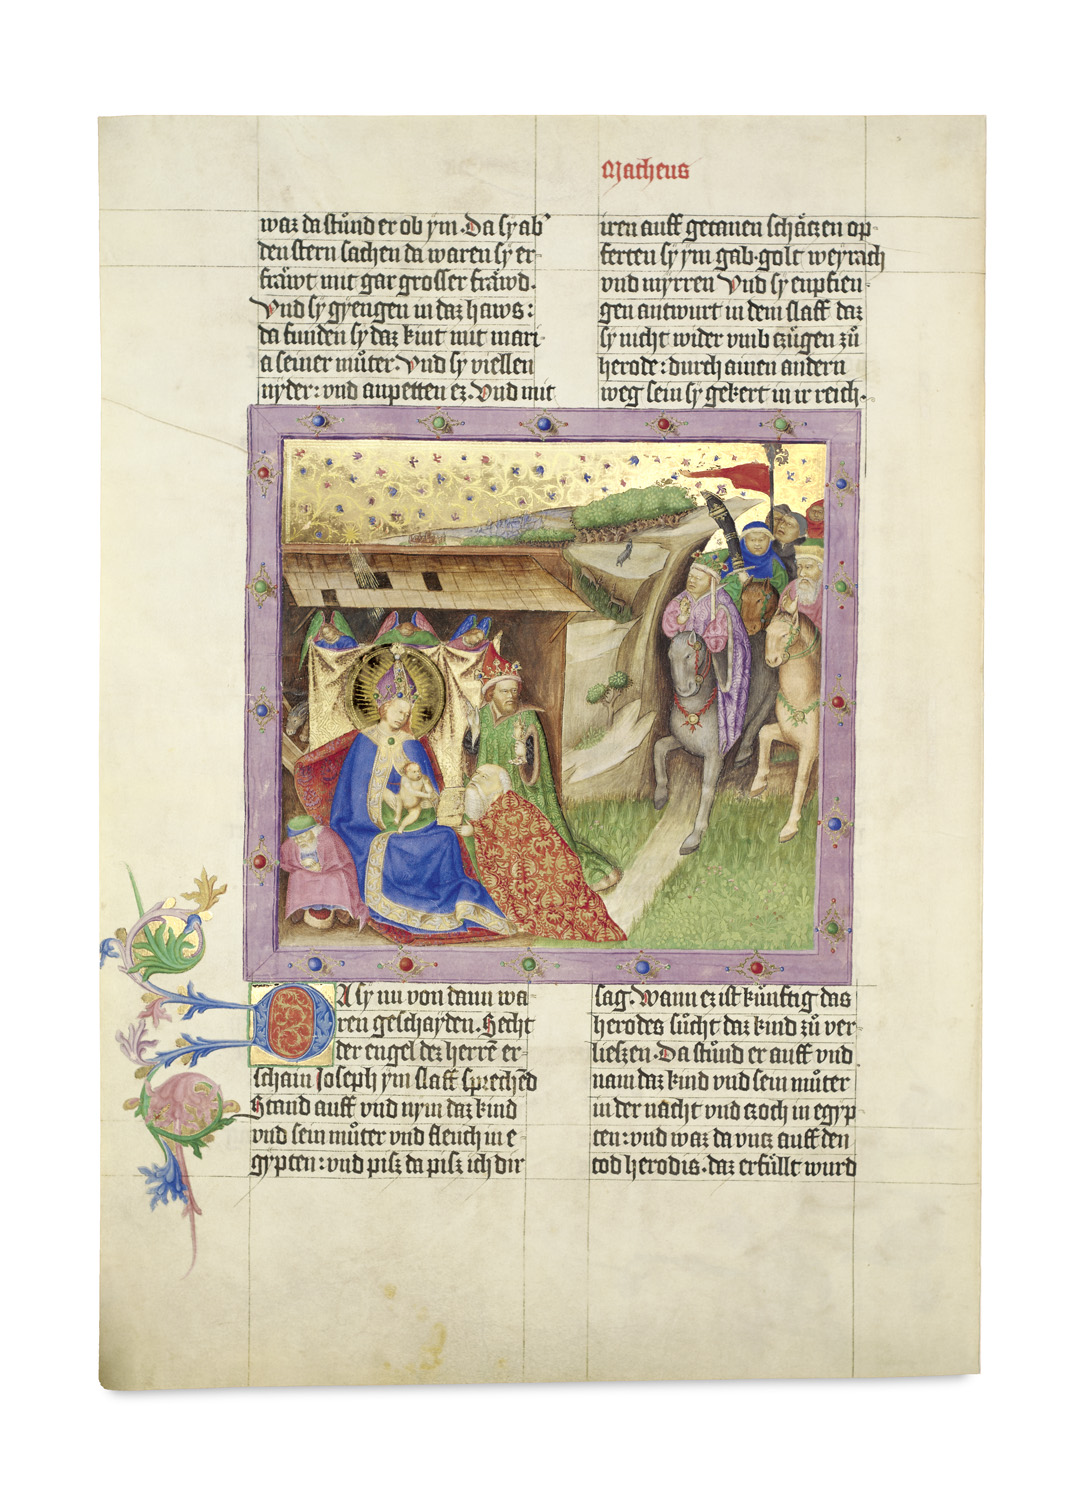 Matheus
waz da stůnd er ob ym. Da sy ab᾽
den stern sachen da waren sy er-
fräwt mit gar grosser fräwd.
Vnd sy gyengen in daz haws:
da funden sy daz kint mit mari-
a seiner můter. Vnd sy viellen
nyder: vnd anpetten ez. Vnd mit
iren auff getanen schäczen op-
ferten sy ym gab. golt weyrach
vnd myrren Vnd sy enpfien-
gen antwurt in dem slaff daz
sy nicht wider vmb czügen zů
herode: durch ainen andern
weg sein sy gekert in ir reich.
DA sy nu von dann wa-
ren geschayden. Secht
der engel dez herrē er-
schain Joseph ym slaff sprechēd
Stand auff vnd nym daz kind
vnd sein můter vnd fleuch in e-
gypten: vnd pisz da pisz ich dir
sag. Wann ez ist künftig das
herodes sücht daz kind zů ver-
lieszen. Da stůnd er auff vnd
nam daz kind vnd sein můter
in der nacht vnd czoch in egyp
ten: vnd waz da vncz auff den
tod herodis. daz erfüllt wurd